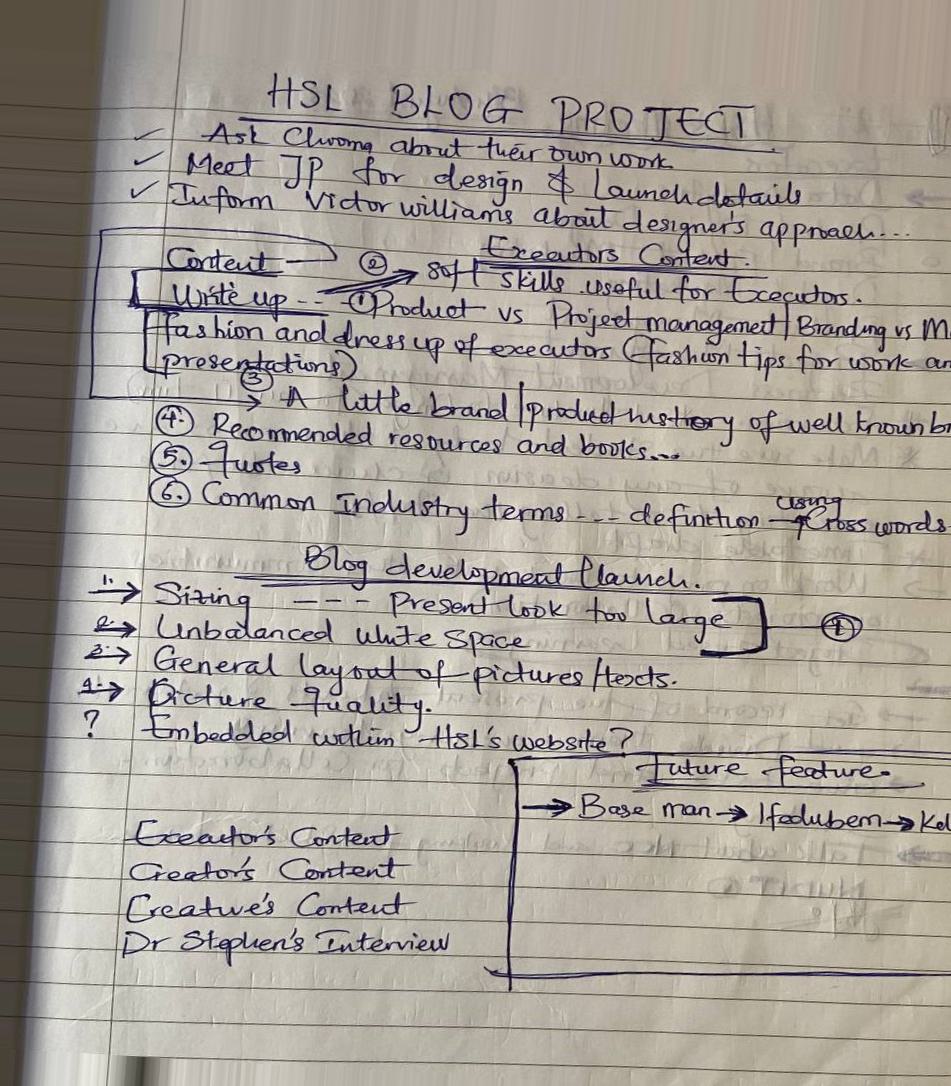 HSL BLOG PROJECT
✓ Ask Chwoma about their own work
✓ Meet JP for design & Launch details
✓ Inform Victor williams about designer's approach...
Executors Content.
Content → ② → soft skills useful for Executors.
Write up -- ① Product vs Project management/Branding vs M
fashion and dress up of executors (fashion tips for work an
presentations)
③ → A little brand/product history of well known br
④. Recommended resources and books...
⑤. Quotes
⑥. Common Industry terms --- definition → using Cross words
Blog development/launch.
1. → Sizing --- Present look too large
2. → Unbalanced white space ①
3. → General layout of pictures/texts.
4. → Picture Quality.
? Embedded within HSL's website?
Future feature.
→ Base man → Ifedubem → Kel
Executor's Content
Creator's Content
Creative's Content
Dr Stephen's Interview